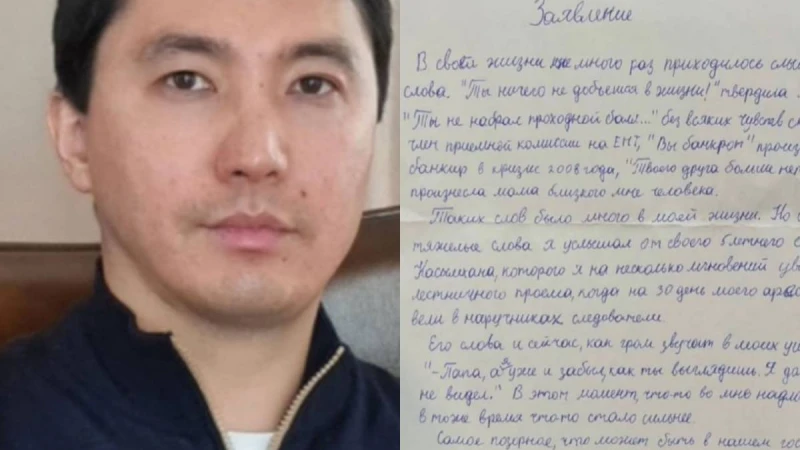 Заявление
В своей жизни мне много раз приходилось
слова. "Ты ничего не добьешься в жизни!" твердила
"Ты не набрал проходной балл..." без всяких чувств
член приемной комиссии на ЕНТ, "Вы банкрот"
банкир в кризис 2008 года, "Твоего друга больше
произнесла мама близкого мне человека.
Таких слов было много в моей жизни. Но
тяжелые слова я услышал от своего 5 летнего
Касымхана, которого я на несколько мгновений
лестничного проема, когда на 30 день моего
вели в наручниках следователи.
Его слова и сейчас, как гром звучат в моих
"-Папа, а я уже и забыл, как ты выглядишь. Я
не видел." В этот момент, что-то во мне
в тоже время что-то стало сильнее.
Самое позорное, что может быть в нашем